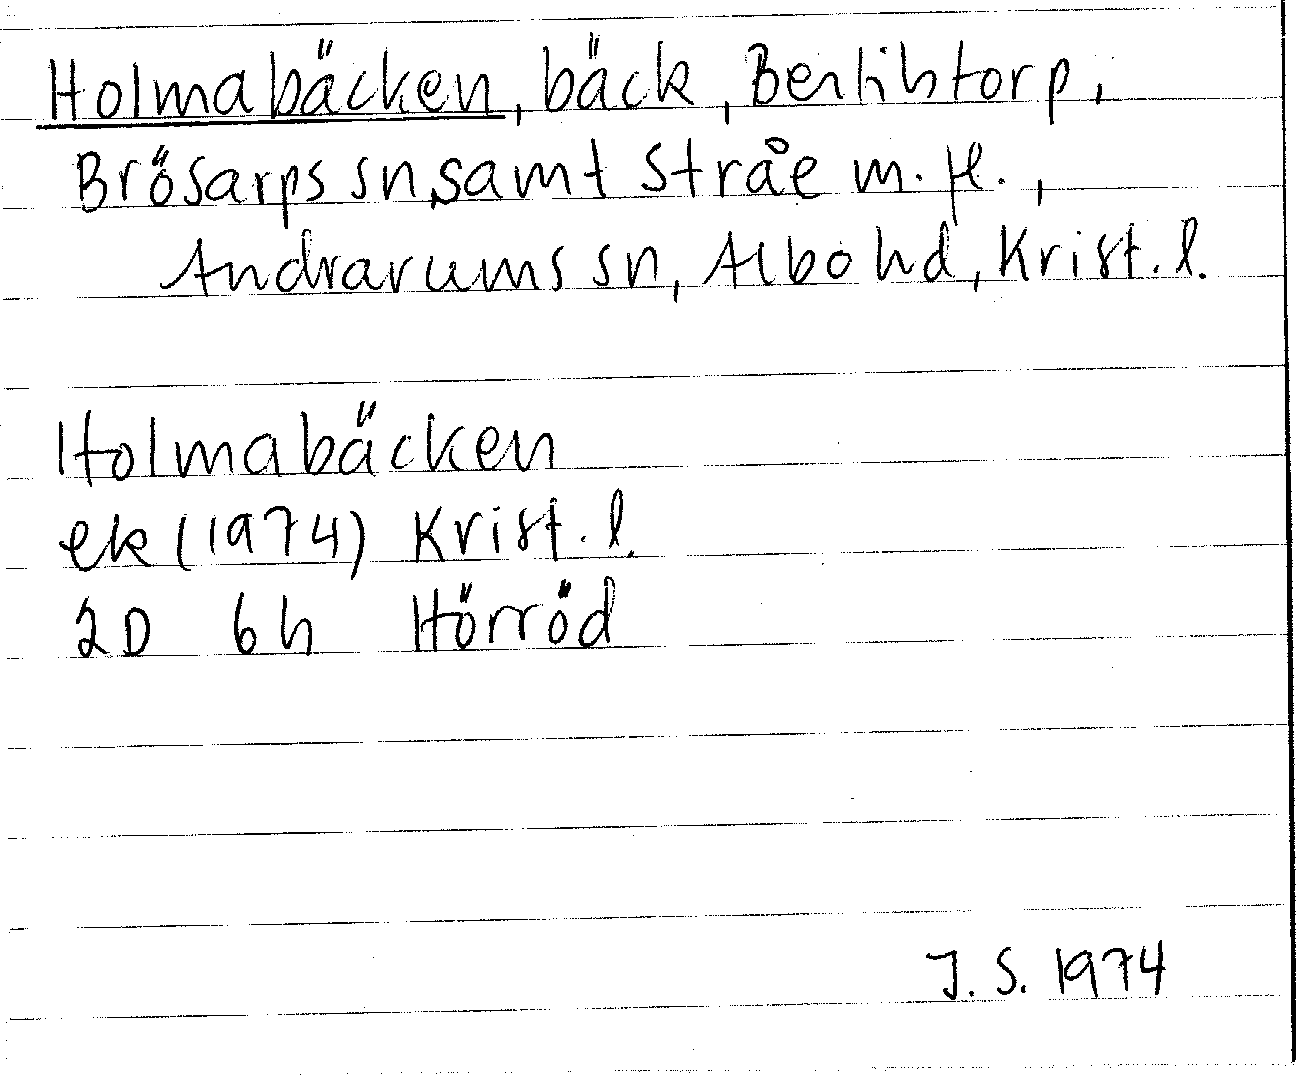 Holmabäcken, bäck, Bertilstorp,
Brösarps sn, samt Stråe m. fl.,
Andrarums sn, Albo hd, Krist. l.
Holmabäcken
ek (1974) Krist. l.
2D 6h Hörröd
J. S. 1974